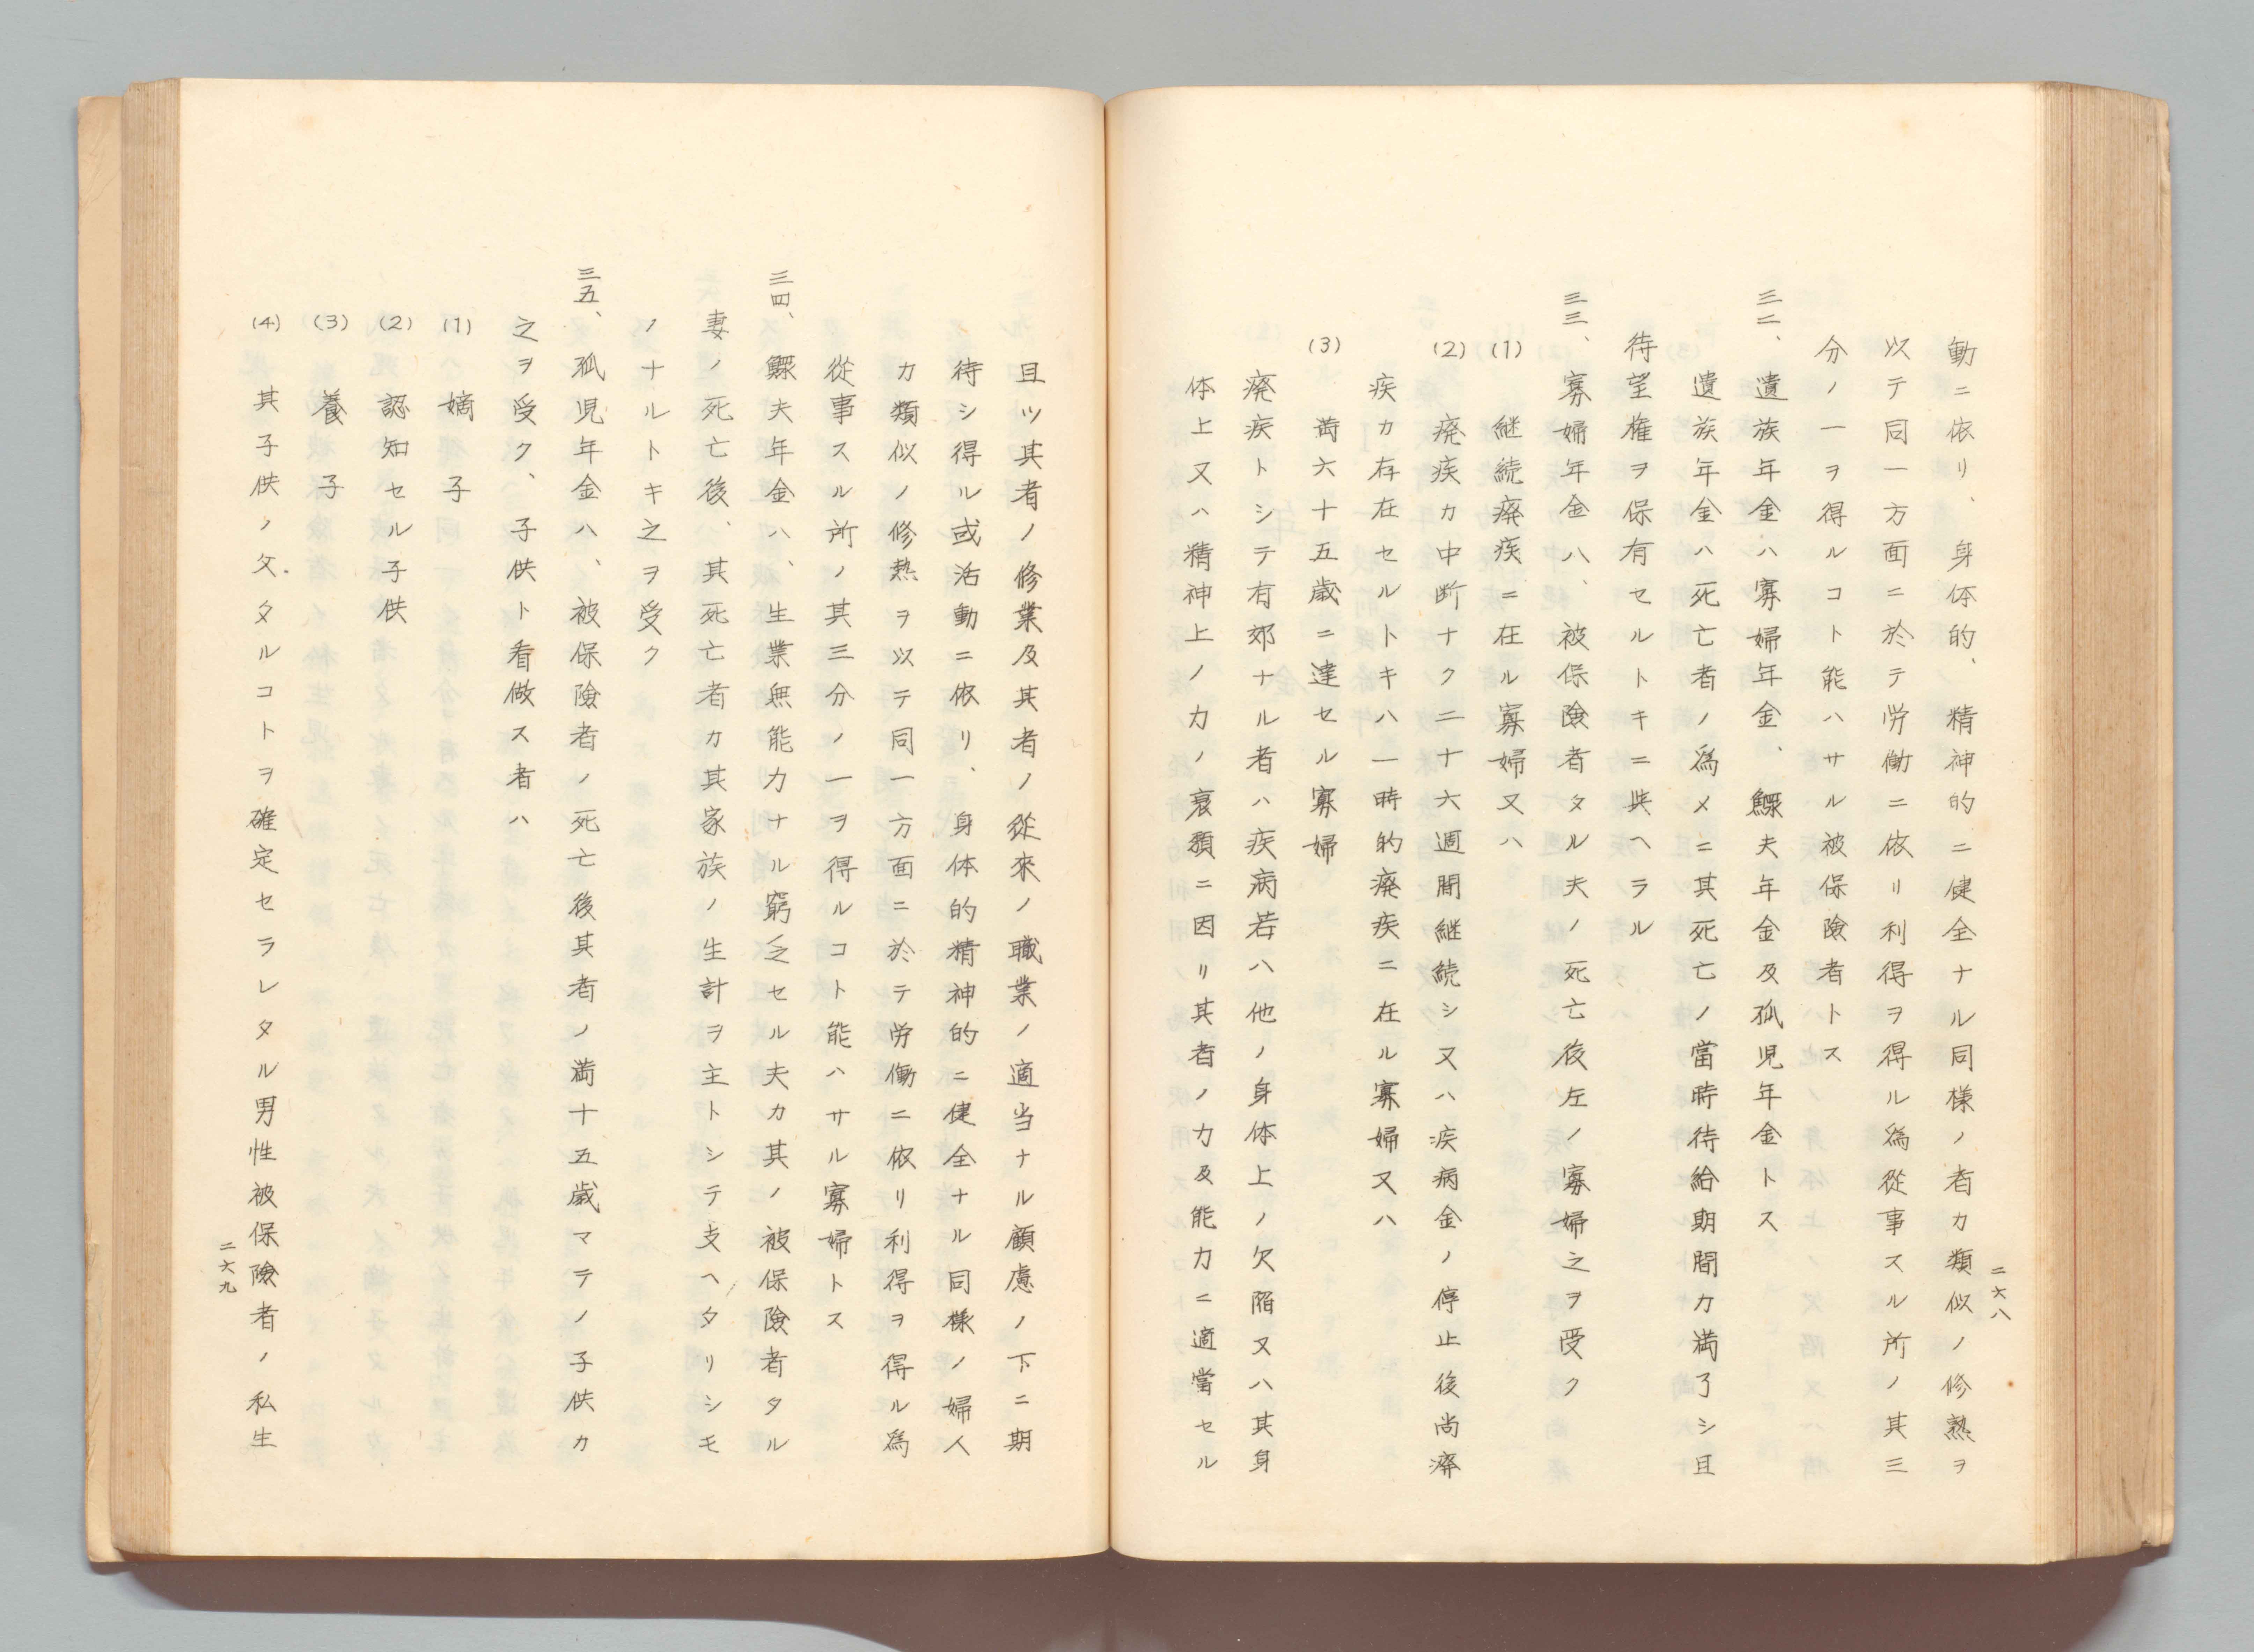 動ニ依リ、身体的、精神的ニ健全ナル同様ノ者カ類似ノ修熟ヲ
以テ同一方面ニ於テ労働ニ依リ利得ヲ得ル為從事スル所ノ其三
分ノ一ヲ得ルコト能ハサル被保險者トス
三二、遺族年金ハ寡婦年金、鰥夫年金及孤児年金トス
遺族年金ハ死亡者ノ為メニ其死亡ノ當時待給期間カ満了シ且
待望権ヲ保有セルトキニ與ヘラル
三三、寡婦年金ハ、被保險者タル夫ノ死亡後左ノ寡婦之ヲ受ク
(1) 継続癈疾ニ在ル寡婦又ハ
(2) 癈疾カ中断ナク二十六週間継続シ又ハ疾病金ノ停止後尚癈
疾カ存在セルトキハ一時的癈疾ニ在ル寡婦又ハ
(3) 満六十五歳ニ達セル寡婦
癈疾トシテ有郊ナル者ハ疾病若ハ他ノ身体上ノ欠陥又ハ其身
体上又ハ精神上ノ力ノ衰頽ニ因リ其者ノ力及能力ニ適當セル
二六八
且ツ其者ノ修業及其者ノ從來ノ職業ノ適当ナル顧慮ノ下ニ期
待シ得ル或活動ニ依リ、身体的精神的ニ健全ナル同様ノ婦人
カ類似ノ修熱ヲ以テ同一方面ニ於テ労働ニ依リ利得ヲ得ル為
從事スル所ノ其三分ノ一ヲ得ルコト能ハサル寡婦トス
三四、鰥夫年金ハ、生業無能力ナル窮乏セル夫カ其ノ被保險者タル
妻ノ死亡後、其死亡者カ其家族ノ生計ヲ主トシテ支ヘタリシモ
ノナルトキ之ヲ受ク
三五、孤児年金ハ、被保險者ノ死亡後其者ノ満十五歳マテノ子供カ
之ヲ受ク、子供ト看做ス者ハ
(1) 嫡子
(2) 認知セル子供
(3) 養子
(4) 其子供ノ父タルコトヲ確定セラレタル男性被保險者ノ私生
二六九